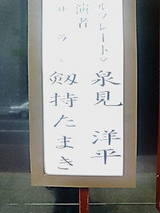 ルフレート〉
泉見 洋平
演者
剱持たまき